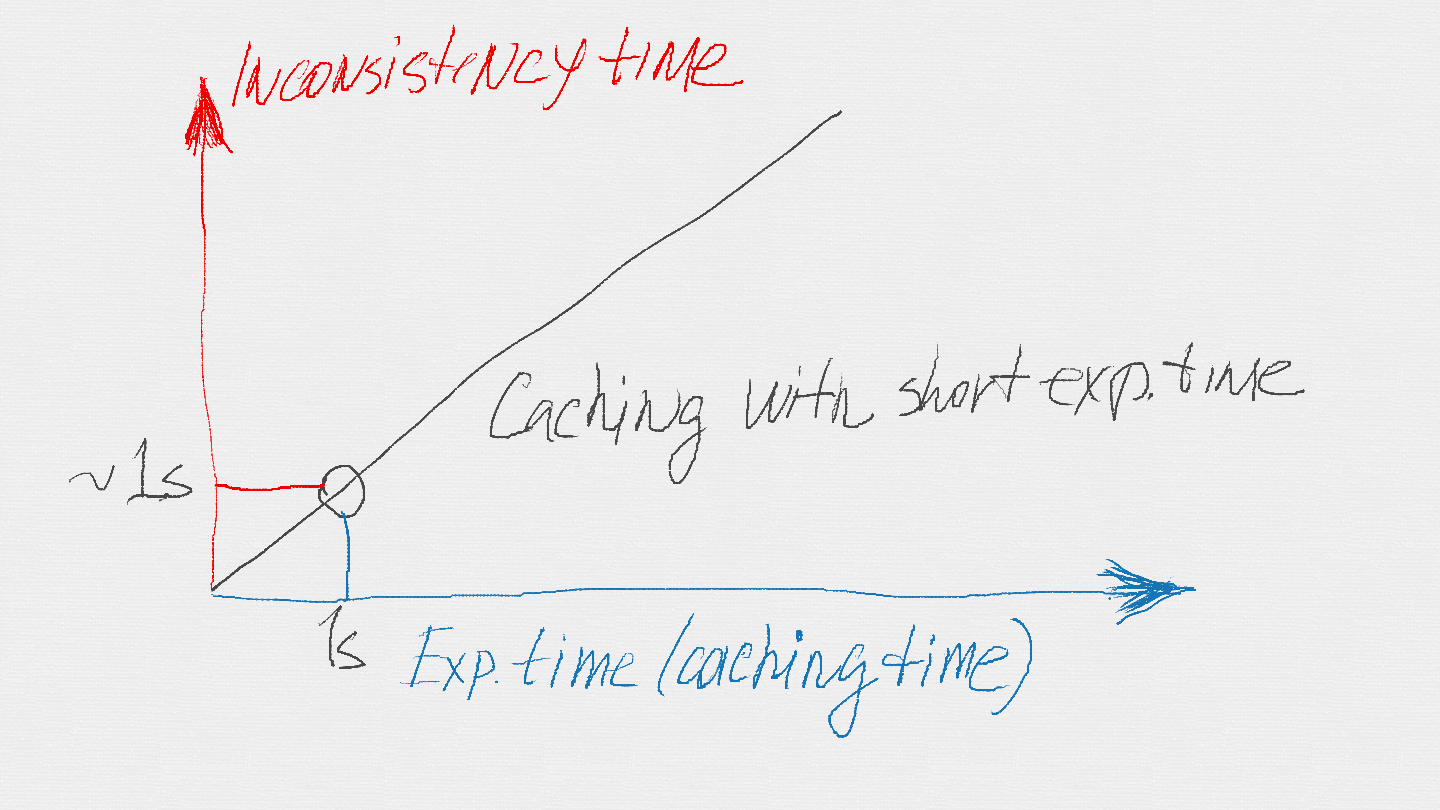 Inconsistency time
Caching with short exp. time
~1s
1s
Exp. time (caching time)